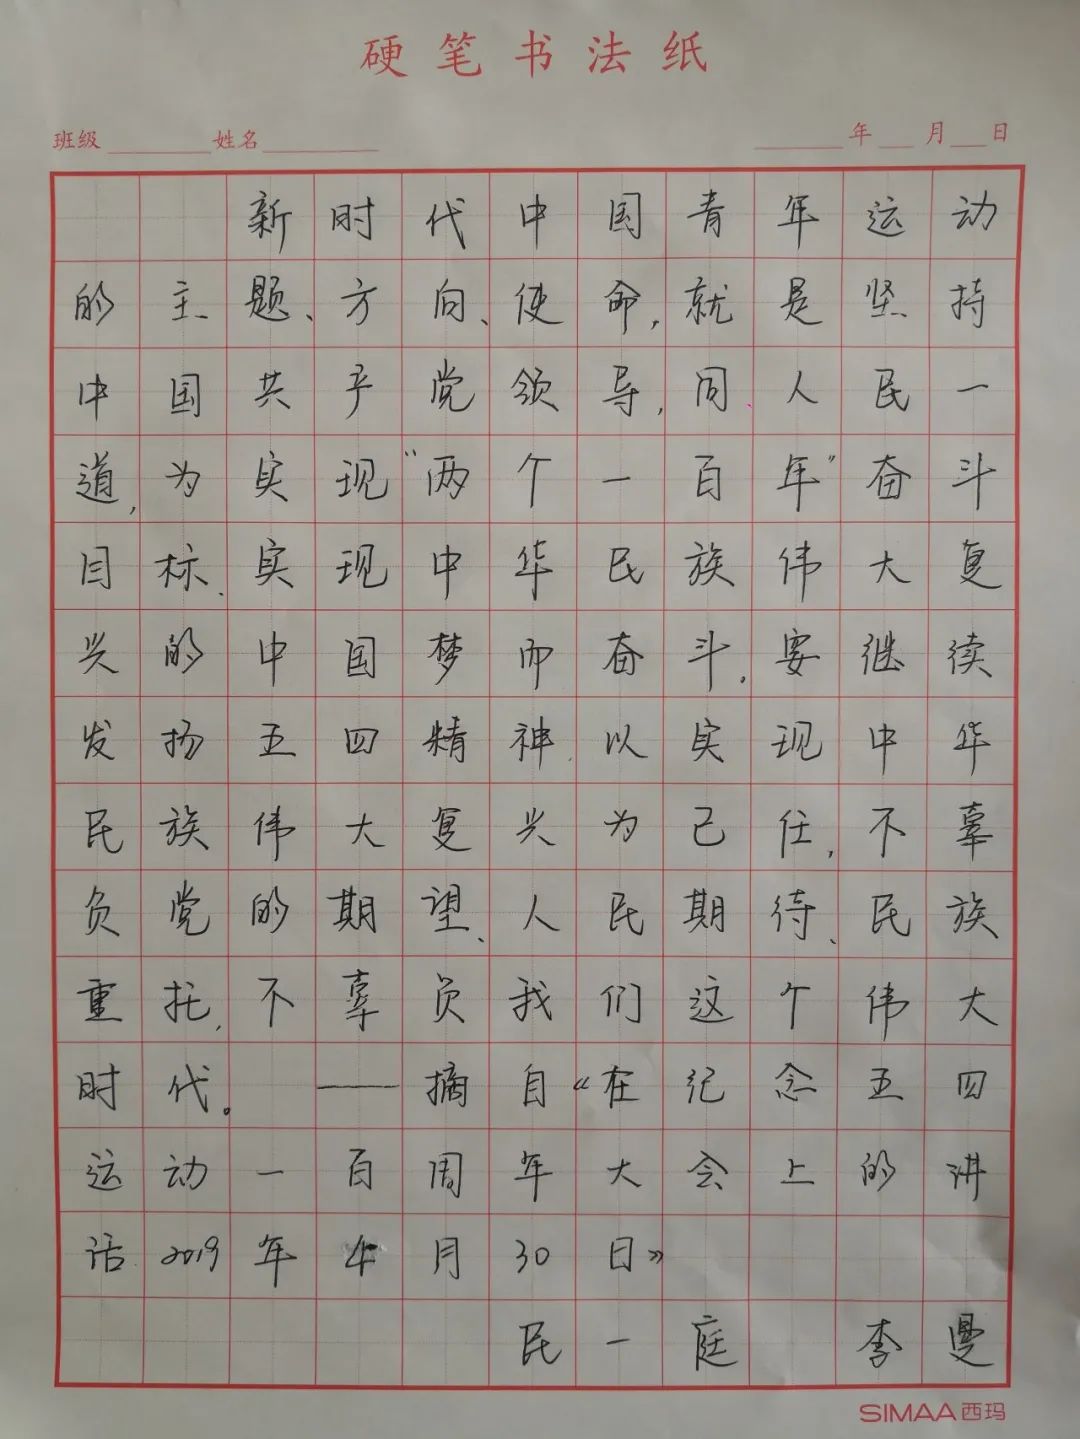 硬笔书法纸
班级 姓名 年 月 日
新时代中国青年运动
的主题、方向、使命,就是坚持
中国共产党领导,同人民一
道,为实现“两个一百年”奋斗
目标、实现中华民族伟大复
兴的中国梦而奋斗,要继续
发扬五四精神,以实现中华
民族伟大复兴为己任,不辜
负党的期望、人民期待、民族
重托,不辜负我们这个伟大
时代。 ——摘自《在纪念五四
运动一百周年大会上的讲
话2019年4月30日》
民一庭 李曼
SIMAA西玛